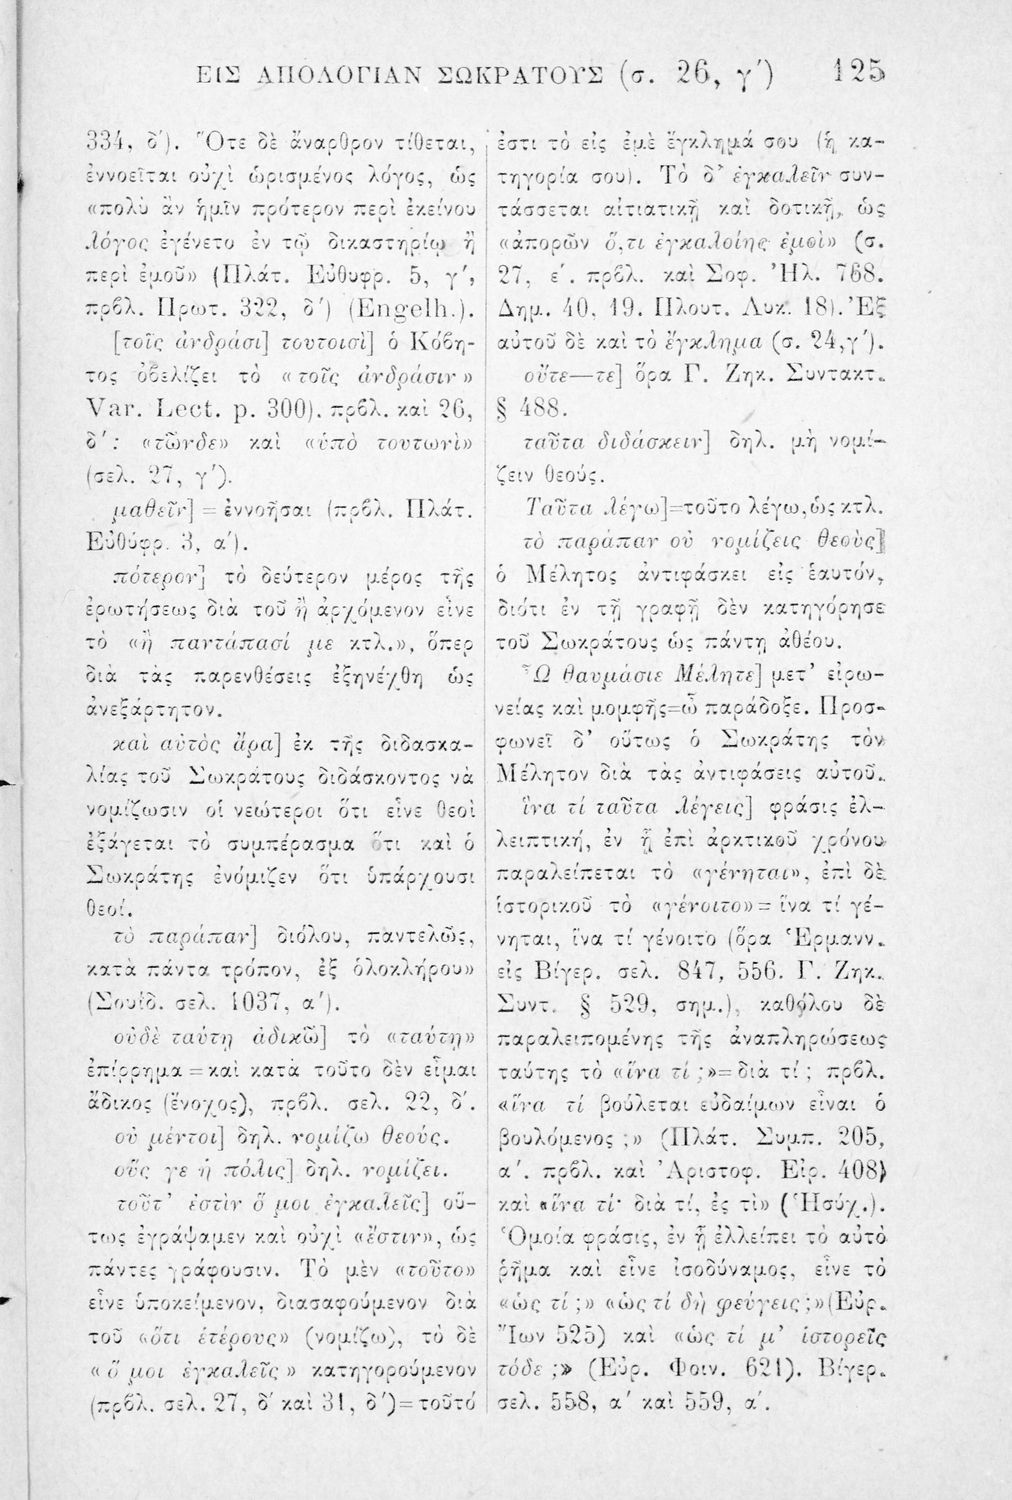 ΕΙΣ ΑΠΟΛΟΓΙΑΝ ΣΩΚΡΑΤΟΥΣ (σ. 26, γ΄) 125
334, δ΄). Ὅτε δὲ ἄναρθρον τίθεται,
ἐννοεῖται οὐχὶ ὡρισμένος λόγος, ὡς
«πολὺ ἂν ἡμῖν πρότερον περὶ ἐκείνου
λόγος ἐγένετο ἐν τῷ δικαστηρίῳ ἢ
περὶ ἐμοῦ» (Πλάτ. Εὐθυφρ. 5, γ΄,
πρβλ. Πρωτ. 322, δ΄) (Engelh.).
[τοῖς ἀνδράσι] τουτοισὶ] ὁ Κόβη-
τος ὀβελίζει τὸ «τοῖς ἀνδράσιν»
Var. Lect. p. 300). πρβλ. καὶ 26,
δ΄: «τῶνδε» καὶ «ὑπὸ τουτωνὶ»
(σελ. 27, γ΄).
μαθεῖν] = ἐννοῆσαι (πρβλ. Πλάτ.
Εὐθύφρ. 3, α΄).
πότερον] τὸ δεύτερον μέρος τῆς
ἐρωτήσεως διὰ τοῦ ἢ ἀρχόμενον εἶνε
τὸ «ἢ παντάπασί με κτλ.», ὅπερ
διὰ τὰς παρενθέσεις ἐξηνέχθη ὡς
ἀνεξάρτητον.
καὶ αὐτὸς ἄρα] ἐκ τῆς διδασκα-
λίας τοῦ Σωκράτους διδάσκοντος νὰ
νομίζωσιν οἱ νεώτεροι ὅτι εἶνε θεοὶ
ἐξάγεται τὸ συμπέρασμα ὅτι καὶ ὁ
Σωκράτης ἐνόμιζεν ὅτι ὑπάρχουσι
θεοί.
τὸ παράπαν] διόλου, παντελῶς,
κατὰ πάντα τρόπον, ἐξ ὁλοκλήρου»
(Σουίδ. σελ. 1037, α΄).
οὐδὲ ταύτῃ ἀδικῶ] τὸ «ταύτῃ»
ἐπίρρημα = καὶ κατὰ τοῦτο δὲν εἶμαι
ἄδικος (ἔνοχος), πρβλ. σελ. 22, δ΄.
οὐ μέντοι] δηλ. νομίζω θεούς.
οὕς γε ἡ πόλις] δηλ. νομίζει.
τοῦτ᾽ ἐστὶν ὅ μοι ἐγκαλεῖς] οὕ-
τως ἐγράψαμεν καὶ οὐχὶ «ἔστιν», ὡς
πάντες γράφουσιν. Τὸ μὲν «τοῦτο»
εἶνε ὑποκείμενον, διασαφούμενον διὰ
τοῦ «ὅτι ἑτέρους» (νομίζω), τὸ δὲ
«ὅ μοι ἐγκαλεῖς» κατηγορούμενον
(πρβλ. σελ. 27, δ΄ καὶ 31, δ΄)= τοῦτό
ἐστι τὸ εἰς ἐμὲ ἔγκλημά σου (ἡ κα-
τηγορία σου). Τὸ δ᾽ ἐγκαλεῖν συν-
τάσσεται αἰτιατικῇ καὶ δοτικῇ, ὡς
«ἀπορῶν ὅ,τι ἐγκαλοίης ἐμοὶ» (σ.
27, ε΄. πρβλ. καὶ Σοφ. Ἠλ. 768.
Δημ. 40, 19. Πλουτ. Λυκ. 18). Ἐξ
αὐτοῦ δὲ καὶ τὸ ἔγκλημα (σ. 24,γ΄).
οὔτε—τε] ὅρα Γ. Ζηκ. Συντακτ.
§ 488.
ταῦτα διδάσκειν] δηλ. μὴ νομί-
ζειν θεούς.
Ταῦτα λέγω]=τοῦτο λέγω,ὡς κτλ.
τὸ παράπαν οὐ νομίζεις θεοὺς]
ὁ Μέλητος ἀντιφάσκει εἰς ἑαυτόν,
διότι ἐν τῇ γραφῇ δὲν κατηγόρησε
τοῦ Σωκράτους ὡς πάντῃ ἀθέου.
Ὦ θαυμάσιε Μέλητε] μετ᾽ εἰρω-
νείας καὶ μομφῆς=ὦ παράδοξε. Προσ-
φωνεῖ δ᾽ οὕτως ὁ Σωκράτης τὸν
Μέλητον διὰ τὰς ἀντιφάσεις αὐτοῦ.
ἵνα τί ταῦτα λέγεις] φράσις ἐλ-
λειπτική, ἐν ᾗ ἐπὶ ἀρκτικοῦ χρόνου
παραλείπεται τὸ «γένηται», ἐπὶ δὲ
ἱστορικοῦ τὸ «γένοιτο» = ἵνα τί γέ-
νηται, ἵνα τί γένοιτο (ὅρα Ἕρμανν.
εἰς Βίγερ. σελ. 847, 556. Γ. Ζηκ.
Συντ. § 529, σημ.), καθόλου δὲ
παραλειπομένης τῆς ἀναπληρώσεως
ταύτης τὸ «ἵνα τί ;»= διὰ τί ; πρβλ.
«ἵνα τί βούλεται εὐδαίμων εἶναι ὁ
βουλόμενος ;» (Πλάτ. Συμπ. 205,
α΄. πρβλ. καὶ Ἀριστοφ. Εἰρ. 408)
καὶ «ἵνα τί· διὰ τί, ἐς τὶ» (Ἡσύχ.).
Ὁμοία φράσις, ἐν ᾗ ἐλλείπει τὸ αὐτὸ
ῥῆμα καὶ εἶνε ἰσοδύναμος, εἶνε τὸ
«ὡς τί ;» «ὡς τί δὴ φεύγεις ;»(Εὐρ.
Ἴων 525) καὶ «ὡς τί μ᾽ ἱστορεῖς
τόδε ;» (Εὐρ. Φοιν. 621). Βίγερ.
σελ. 558, α΄ καὶ 559, α΄.